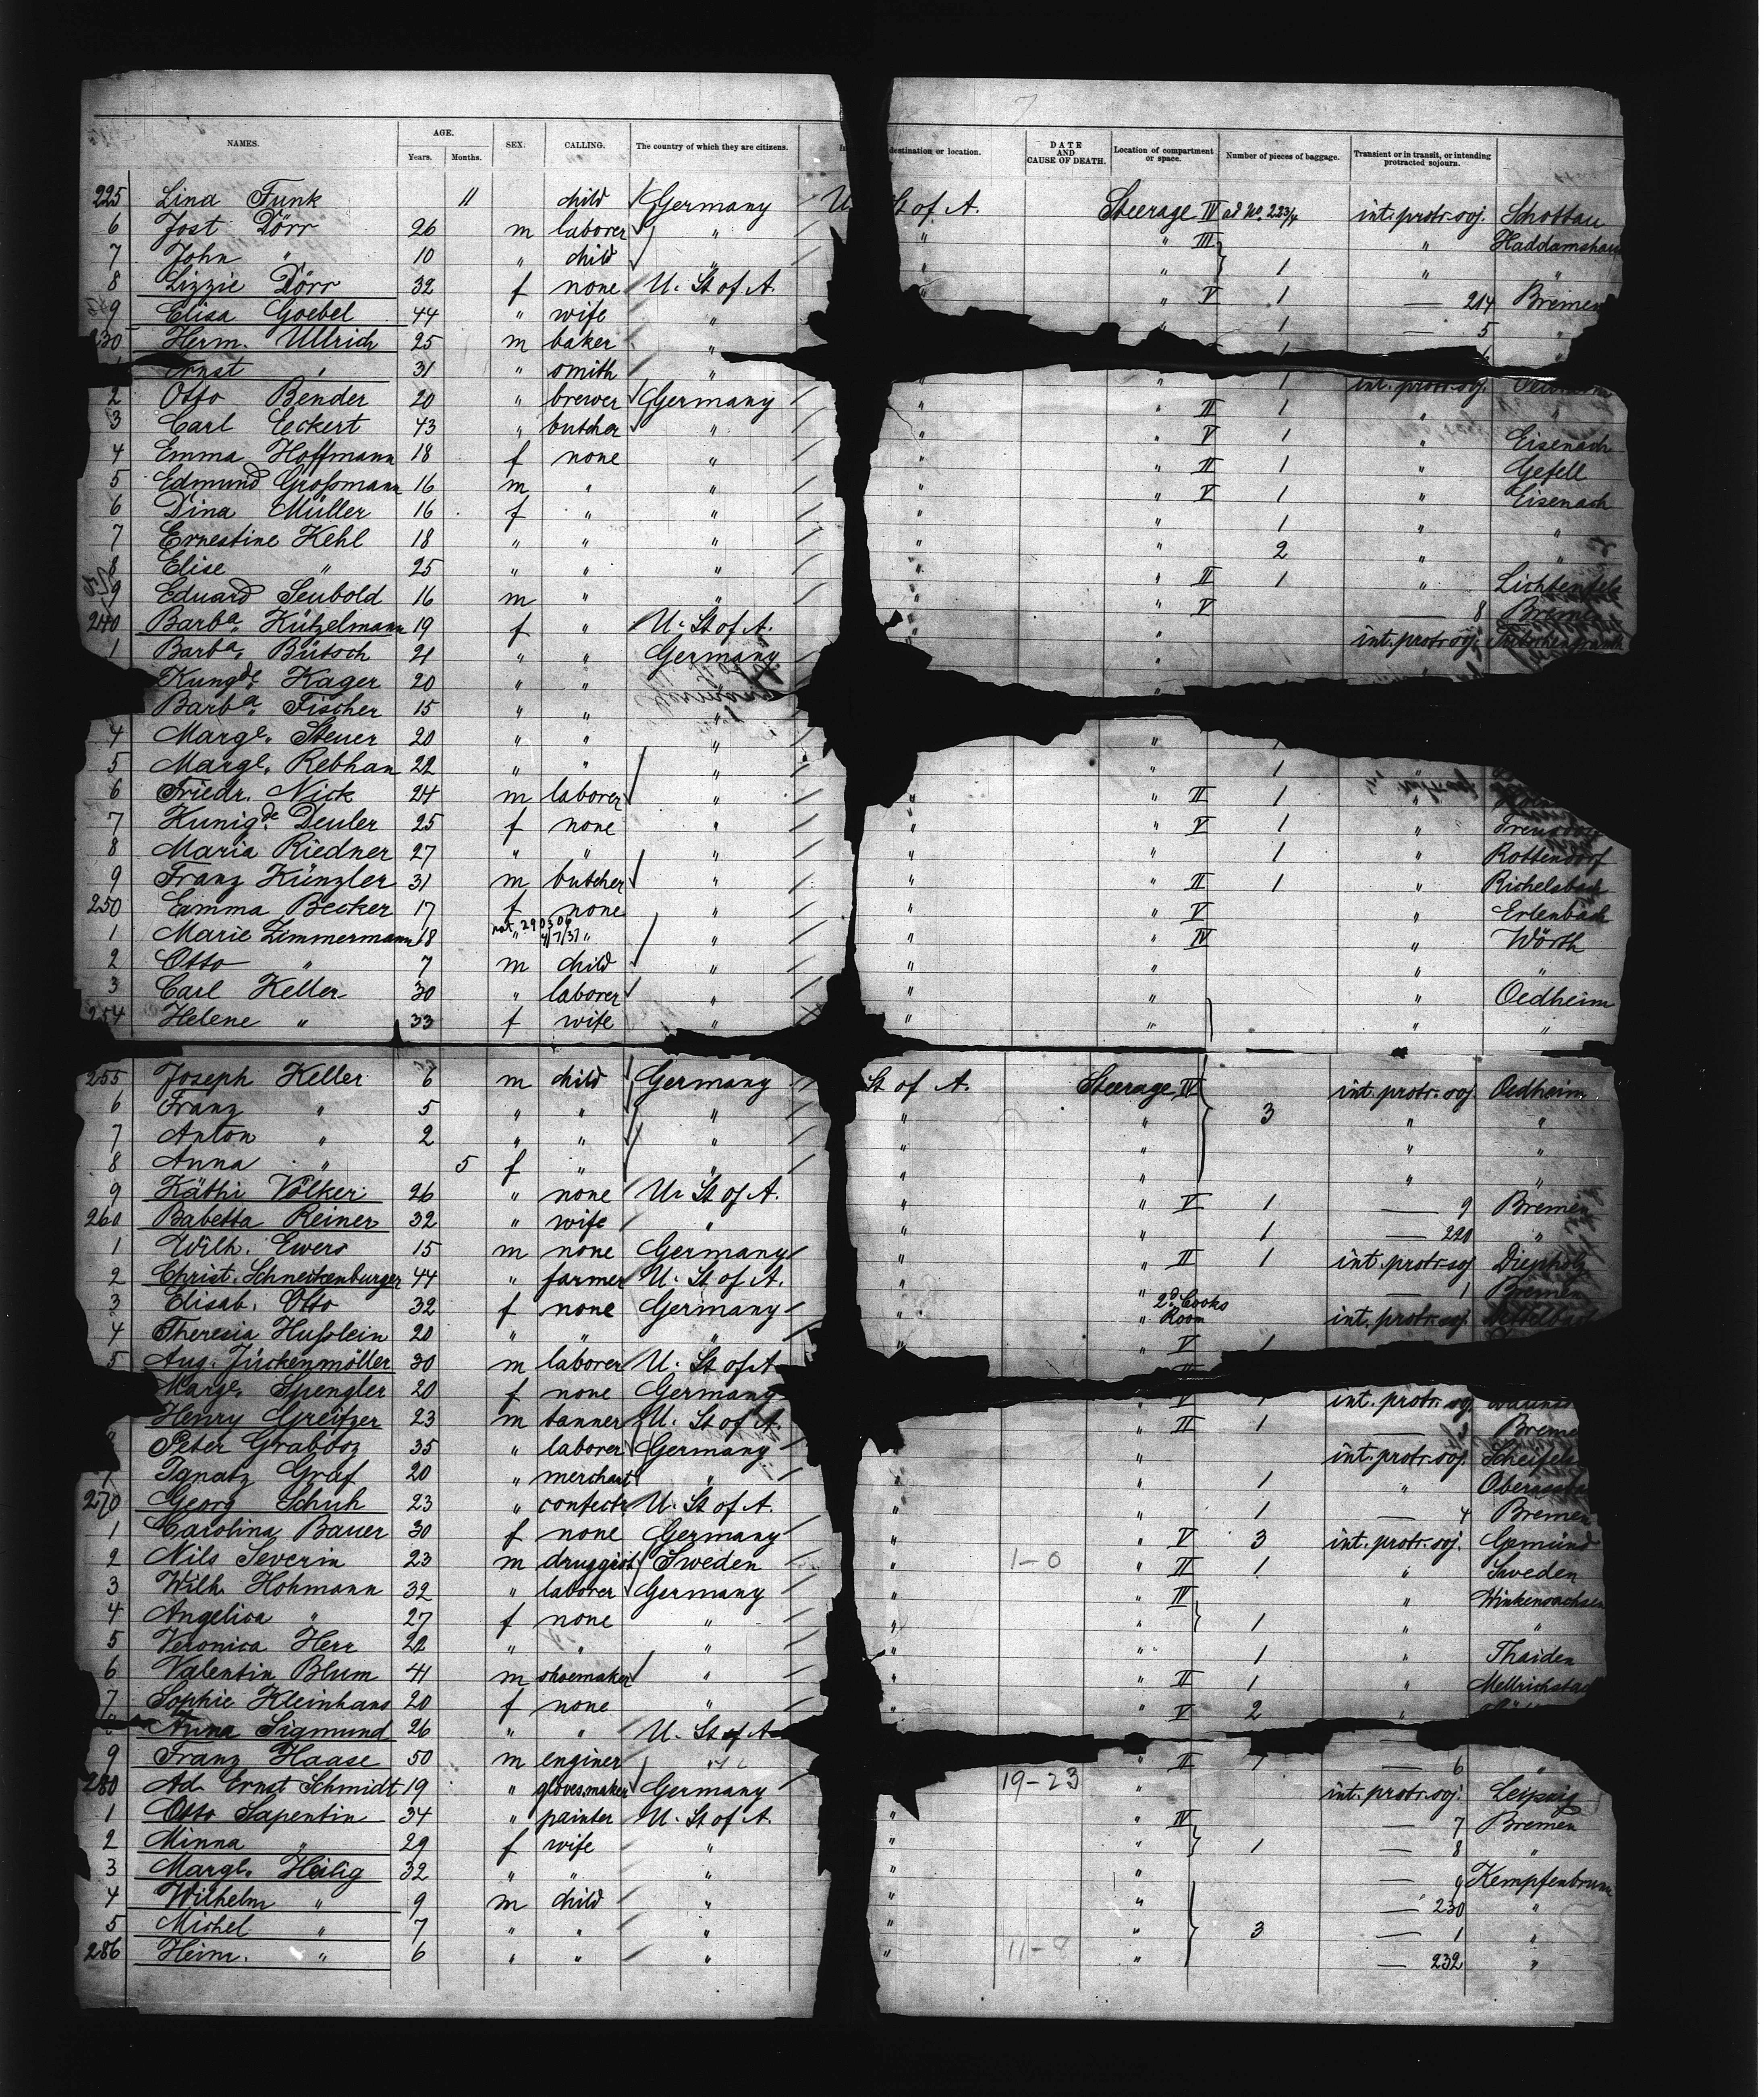 7
NAMES. AGE. Years. Months. SEX. CALLING. The country of which they are citizens. destination or location. DATE AND CAUSE OF DEATH. Location of compartment or space. Number of pieces of baggage. Transient or in transit, or intending protracted sojourn.
225 Lina Funk 11 child Germany U. St of A. Steerage IV ad No. 223/4 int. protr. soj. Schottau
6 Jost Dörr 26 m laborer " " " III " Haddamshau
7 John " 10 " child " " " 1 " "
8 Lizzie Dörr 32 f none U. St of A. " " V 1 — 214 Bremen
9 Elisa Goebel 44 " wife " " 1 — 5 "
230 Herm. Ullrich 25 m baker " 6 "
Ernst " 31 " smith " " " 1 int. protr. soj.
2 Otto Bender 20 " brewer Germany " " II 1 " "
3 Carl Eckert 43 " butcher " " " V 1 " Eisenach
4 Emma Hoffmann 18 f none " " " II 1 " Gefell
5 Edmund Großmann 16 m " " " " V 1 " Eisenach
6 Dina Müller 16 f " " " " 1 " "
7 Ernestine Kehl 18 " " " " " 2 " "
8 Elise " 25 " " " " " II 1 " Lichtenfels
9 Eduard Seubold 16 m " " " " V 8 Bremen
240 Barba. Kützelmann 19 f " U. St of A. " " int. protr. soj.
1 Barba. Bütsch 21 " " Germany "
Kungde. Kager 20 " " "
Barba. Fischer 15 " " "
4 Margle. Steuer 20 " " " "
5 Margl. Rebhan 22 " " " 1 "
6 Friedr. Nick 24 m laborer " " " II 1 "
7 Kunigde. Deuler 25 f none " " " V 1 "
8 Maria Riedner 27 " " " " " 1 " Rottendorf
9 Franz Künzler 31 m butcher " " " II 1 " Richelsbach
250 Emma Becker 17 f none " " " V " Erlenbach
nat. 290306 4/7/37
1 Marie Zimmermann 18 " " " " " IV " Wörth
2 Otto " 7 m child " " " " "
3 Carl Keller 30 " laborer " " " " Oedheim
254 Helene " 33 f wife " " " " "
255 Joseph Keller 6 m child Germany St of A. Steerage IV int. protr. soj. Oedheim
6 Franz " 5 " " " " " 3 " "
7 Anton " 2 " " " " " " "
8 Anna " 5 f " " " " " "
9 Käthi Völker 26 " none U. St of A. " " V 1 — 9 Bremen
260 Babetta Reiner 32 " wife " " " 1 — 220 "
1 Wilh. Ewers 15 m none Germany " " II 1 int. protr. soj Diepholz
2 Christ. Schneckenburger 44 " farmer U. St of A. " " — 1 Bremen
3 Elisab. Otto 32 f none Germany " " 2d Cooks Room int. protr. soj
4 Theresia Hußlein 20 " " " " " V 1
5 Aug. Jückenmöller 30 m laborer U. St of A
Margle. Spengler 20 f none Germany " V 1 int. protr. soj
Henry Greifzer 23 m tanner U. St of A. " II 1 — 3 Breme
Peter Grabooz 35 " laborer Germany " int. protr. soj.
Ignatz Graf 20 " merchant " " " 1 "
270 Georg Schuh 23 " confectr. U. St of A. " " 1 — 4 Bremen
1 Carolina Bauer 30 f none Germany " " V 3 int. protr. soj. Gemünd
2 Nils Severin 23 m druggist Sweden " 1-0 " II 1 " Sweden
3 Wilh. Hohmann 32 " laborer Germany " " IV " Winkensachsen
4 Angelica " 27 f none " " " 1 " "
5 Veronica Herr 22 " " " " " 1 " Thaiden
6 Valentin Blum 41 m shoemaker " " " II 1 " Mellrichstad
7 Sophie Kleinhans 20 f none " " " V 2 "
Anna Sigmund 26 " " U. St of A
9 Franz Haase 50 m enginer " " II 1 — 6 "
280 Ad. Ernst Schmidt 19 " glovesmaker Germany 19-23 " int. protr. soj. Leipzig
1 Otto Sapentin 34 " painter U. St of A. " " IV — 7 Bremen
2 Minna " 29 f wife " " " 1 — 8 "
3 Margle. Heilig 32 " " " " " — 9 Kempfenbrunn
4 Wilhelm " 9 m child " " " — 230 "
5 Michel " 7 " " " " " 3 — 1 "
286 Heinr. " 6 " " " " 11-8 " — 232 "